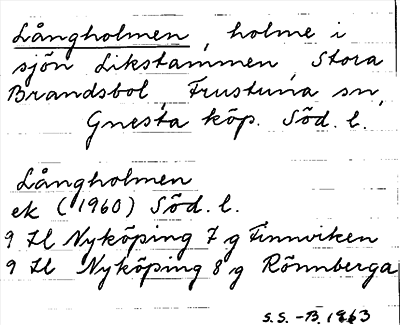 Långholmen, holme i
sjön Likstammen, Stora
Brandsbol, Frustuna sn,
Gnesta köp. Söd. l.
Långholmen
ek (1960) Söd. l.
9 Il Nyköping 7 g Finnviken
9 Il Nyköping 8 g Rönnberga
S.S. -B. 1963